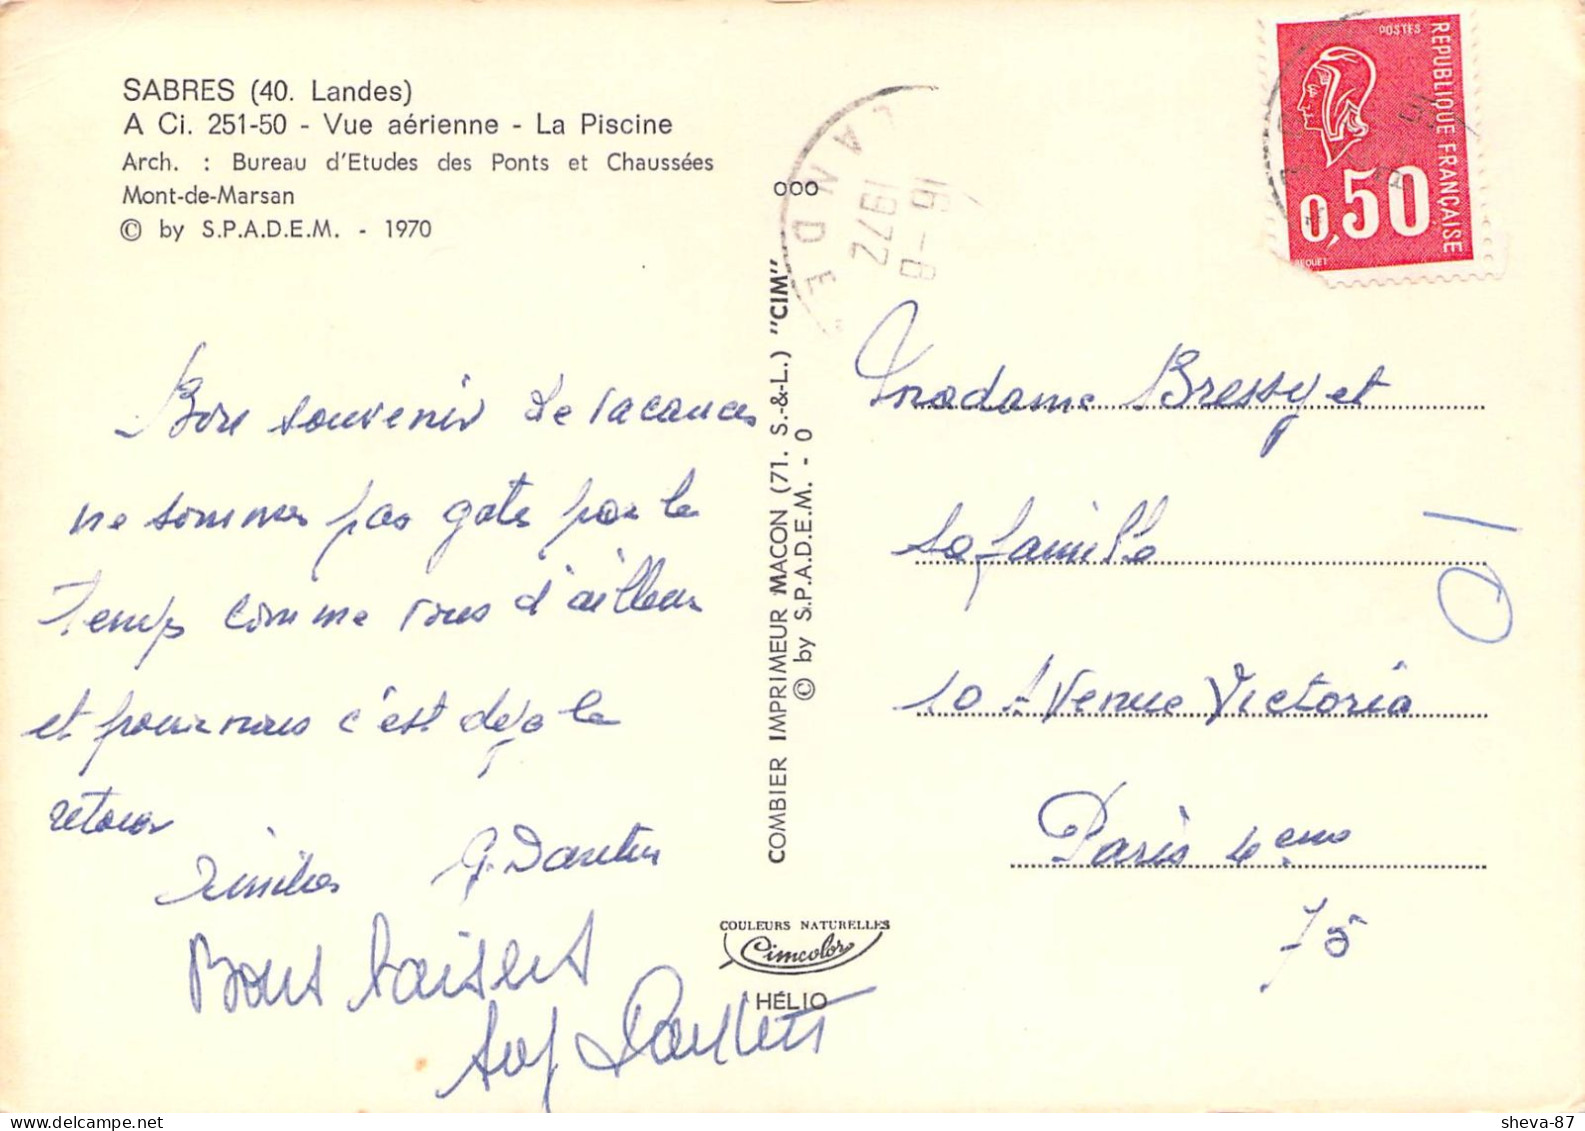 SABRES (40. Landes)
A Ci. 251-50 - Vue aérienne - La Piscine
Arch. : Bureau d'Etudes des Ponts et Chaussées
Mont-de-Marsan
© by S.P.A.D.E.M. - 1970
Bon souvenir de vacances
ne sommes pas gates par le
Temps comme vous d'ailleurs
et pour nous c'est deja le
retour
Bons baisers
COMBIER IMPRIMEUR MACON (71. S.-&-L.) "CIM"
© by S.P.A.D.E.M. - O
COULEURS NATURELLES
Cimcolor
HÉLIO
LANDES
16-8
1972
POSTES
REPUBLIQUE FRANÇAISE
0,50
BEQUET
Madame Bressy et
sa famille
10 Avenue Victoria
Paris 4eme
75
sheva-87